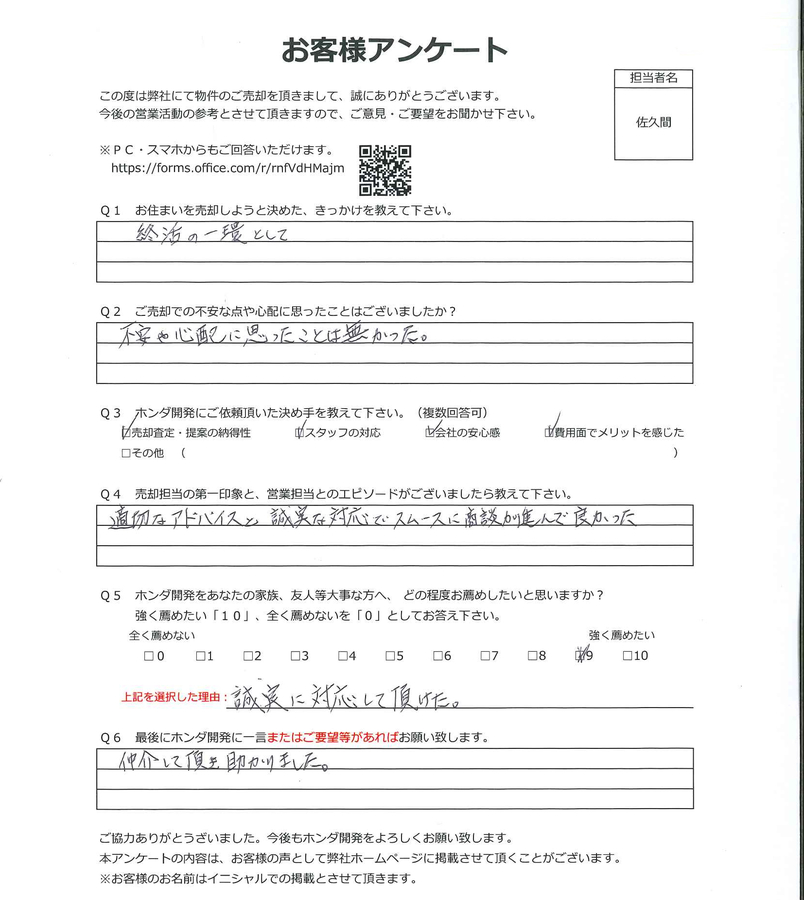 お客様アンケート
担当者名
佐久間
この度は弊社にて物件のご売却を頂きまして、誠にありがとうございます。
今後の営業活動の参考とさせて頂きますので、ご意見・ご要望をお聞かせ下さい。
※ＰＣ・スマホからもご回答いただけます。
https://forms.office.com/r/rnfVdHMajm
Ｑ１　お住まいを売却しようと決めた、きっかけを教えて下さい。
終活の一環として
Ｑ２　ご売却での不安な点や心配に思ったことはございましたか？
不安や心配に思ったことは無かった。
Ｑ３　ホンダ開発にご依頼頂いた決め手を教えて下さい。（複数回答可）
☑売却査定・提案の納得性　☑スタッフの対応　☑会社の安心感　☑費用面でメリットを感じた
□その他　（　）
Ｑ４　売却担当の第一印象と、営業担当とのエピソードがございましたら教えて下さい。
適切なアドバイスと誠実な対応でスムースに商談が進んで良かった
Ｑ５　ホンダ開発をあなたの家族、友人等大事な方へ、どの程度お薦めしたいと思いますか？
強く薦めたい「１０」、全く薦めないを「０」としてお答え下さい。
全く薦めない　強く薦めたい
□0　□1　□2　□3　□4　□5　□6　□7　□8　☑9　□10
上記を選択した理由：誠実に対応して頂けた。
Ｑ６　最後にホンダ開発に一言またはご要望等があればお願い致します。
仲介して頂き助かりました。
ご協力ありがとうざいました。今後もホンダ開発をよろしくお願い致します。
本アンケートの内容は、お客様の声として弊社ホームページに掲載させて頂くことがございます。
※お客様のお名前はイニシャルでの掲載とさせて頂きます。